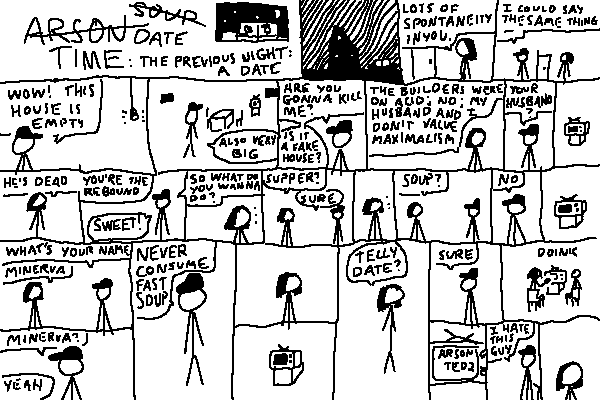 ARSON SOUP
DATE
TIME: THE PREVIOUS NIGHT:
A DATE
LOTS OF
SPONTANEITY
IN YOU.
I COULD SAY
THE SAME THING
WOW! THIS
HOUSE IS
EMPTY
ALSO VERY
BIG
ARE YOU
GONNA KILL
ME?
IS IT
A FAKE
HOUSE?
THE BUILDERS WERE
ON ACID; NO; MY
HUSBAND AND I
DON'T VALUE
MAXIMALISM
YOUR
HUSBAND
?
HE'S DEAD
YOU'RE THE
REBOUND
SWEET!
SO WHAT DO
YOU WANNA
DO?
SUPPER?
SURE
SOUP?
NO
WHAT'S YOUR NAME
MINERVA
NEVER
CONSUME
FAST
SOUP
TELLY
DATE?
SURE
DOINK
MINERVA?
YEAH
ARSON:
TED2
I HATE
THIS
GUY